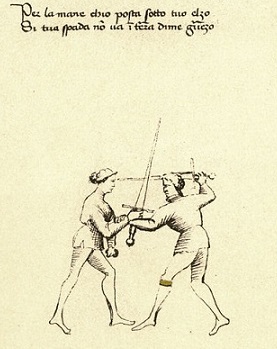 Per la mane chio posta sotto tuo elzo
Si tua spada nō va ī tera dime